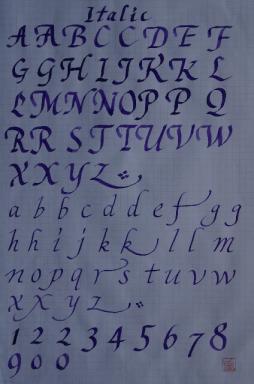 Italic
A A B C C D E F
G G H I J K K L
L M N N O P P Q
R R S T T U V W
X X Y Z
a b b c d d e f g g
h h i j k k l l m
n o p q r s t u v w
x x y z
1 2 2 3 4 5 6 7 8
9 0 0